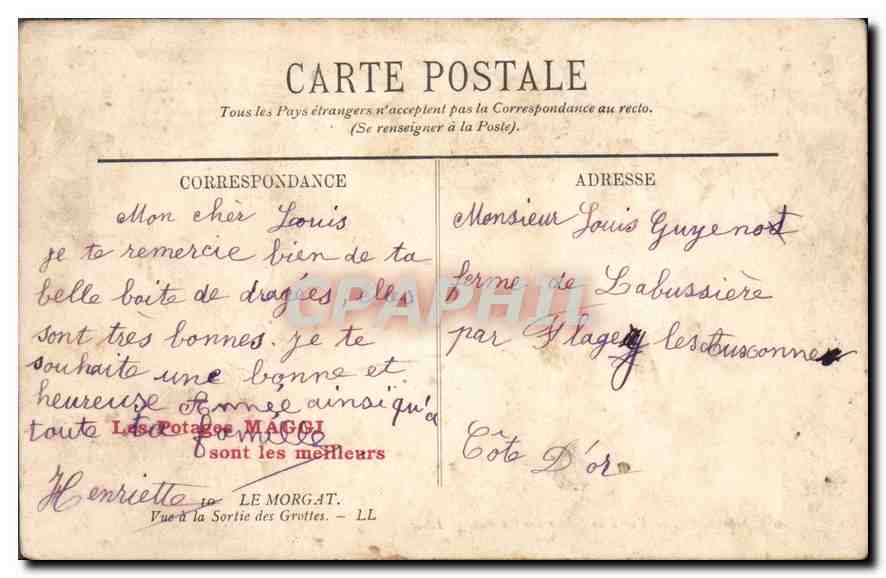 CARTE POSTALE
Tous les Pays étrangers n'acceptent pas la Correspondance au recto.
(Se renseigner à la Poste).
CORRESPONDANCE
Mon chèr Louis
je te remercie bien de ta
belle boite de dragées, elles
sont très bonnes. je te
souhaite une bonne et
heureuse Année ainsi qu'a
toute ta famille
Les Potages MAGGI
sont les meilleurs
Henriette
10 LE MORGAT.
Vue à la Sortie des Grottes. - LL
ADRESSE
Monsieur Louis Guyenot
ferme de Labussière
par Flagey les Auxonne
Côte D'or
CPAPHIL